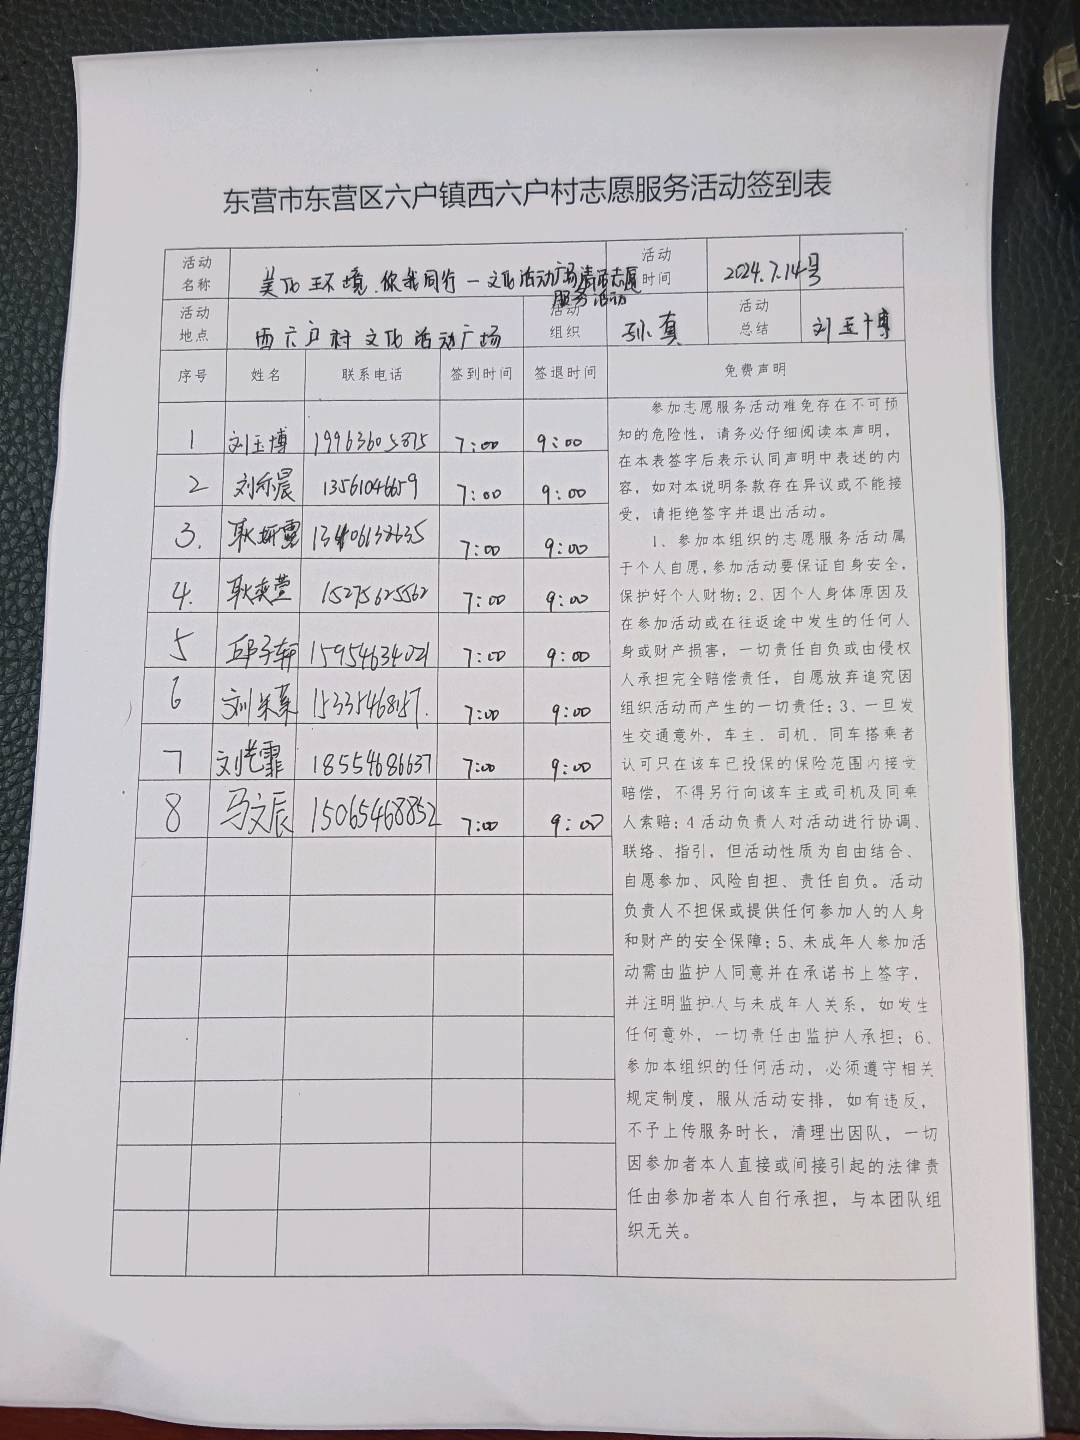 东营市东营区六户镇西六户村志愿服务活动签到表
活动名称 美化环境.你我同行—文化活动广场清洁志愿服务活动 活动时间 2024.7.14号
活动地点 西六户村文化活动广场 活动组织 孙真 活动总结 刘玉博
序号 姓名 联系电话 签到时间 签退时间 免费声明
1 刘玉博 19963605875 7:00 9:00
2 13561046659 7:00 9:00
3. 7:00 9:00
4. 耿奕萱 15275625562 7:00 9:00
5 邱子轩 15954634021 7:00 9:00
6 7:00 9:00
7 18554686637 7:00 9:00
8 马文辰 15065468852 7:00 9:00
参加志愿服务活动难免存在不可预
知的危险性，请务必仔细阅读本声明，
在本表签字后表示认同声明中表述的内
容，如对本说明条款存在异议或不能接
受，请拒绝签字并退出活动。
1、参加本组织的志愿服务活动属
于个人自愿，参加活动要保证自身安全，
保护好个人财物；2、因个人身体原因及
在参加活动或在往返途中发生的任何人
身或财产损害，一切责任自负或由侵权
人承担完全赔偿责任，自愿放弃追究因
组织活动而产生的一切责任；3、一旦发
生交通意外，车主、司机、同车搭乘者
认可只在该车已投保的保险范围内接受
赔偿，不得另行向该车主或司机及同乘
人索赔；4 活动负责人对活动进行协调、
联络、指引，但活动性质为自由结合、
自愿参加、风险自担、责任自负。活动
负责人不担保或提供任何参加人的人身
和财产的安全保障；5、未成年人参加活
动需由监护人同意并在承诺书上签字，
并注明监护人与未成年人关系，如发生
任何意外，一切责任由监护人承担；6、
参加本组织的任何活动，必须遵守相关
规定制度，服从活动安排，如有违反，
不予上传服务时长，清理出因队，一切
因参加者本人直接或间接引起的法律责
任由参加者本人自行承担，与本团队组
织无关。